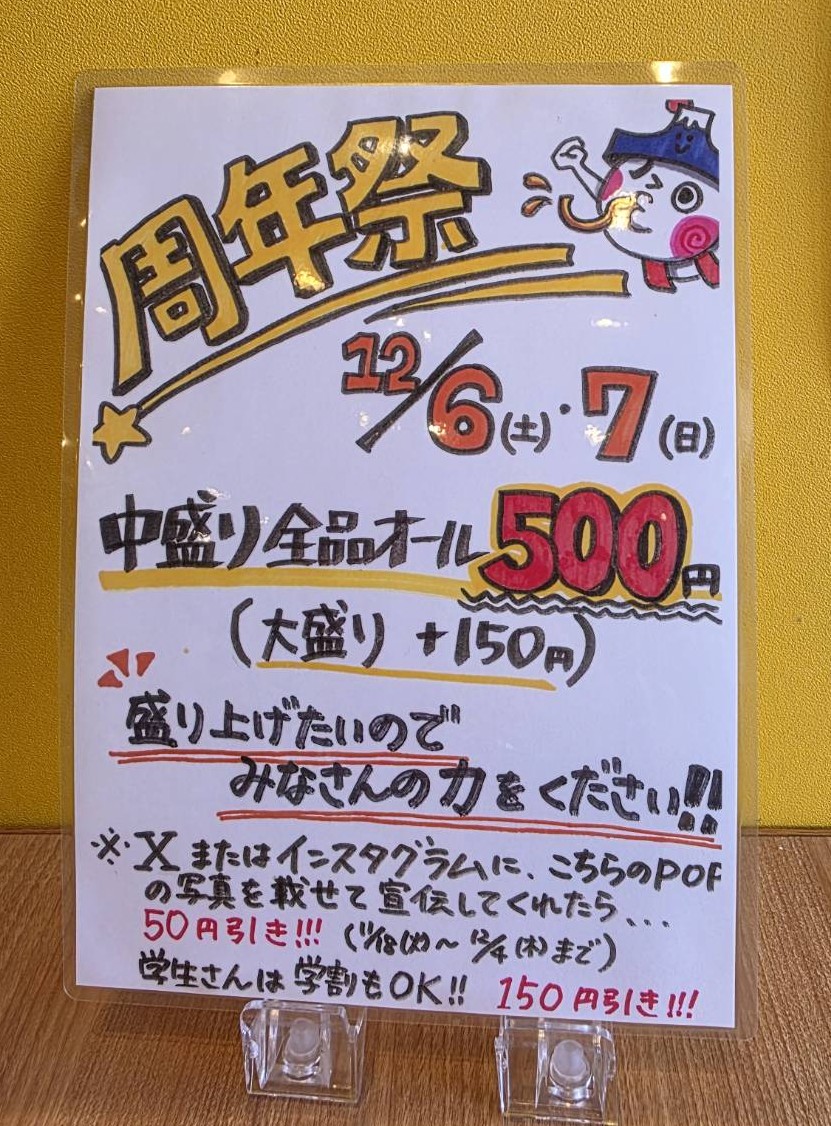 周年祭
12/6(土)・7(日)
中盛り全品オール500円
(大盛り +150円)
盛り上げたいので
みなさんの力をください!!
※Xまたはインスタグラムに、こちらのPOP
の写真を載せて宣伝してくれたら、、、
50円引き!!! (11/18(火)〜12/4(木)まで)
学生さんは学割もOK!! 150円引き!!!